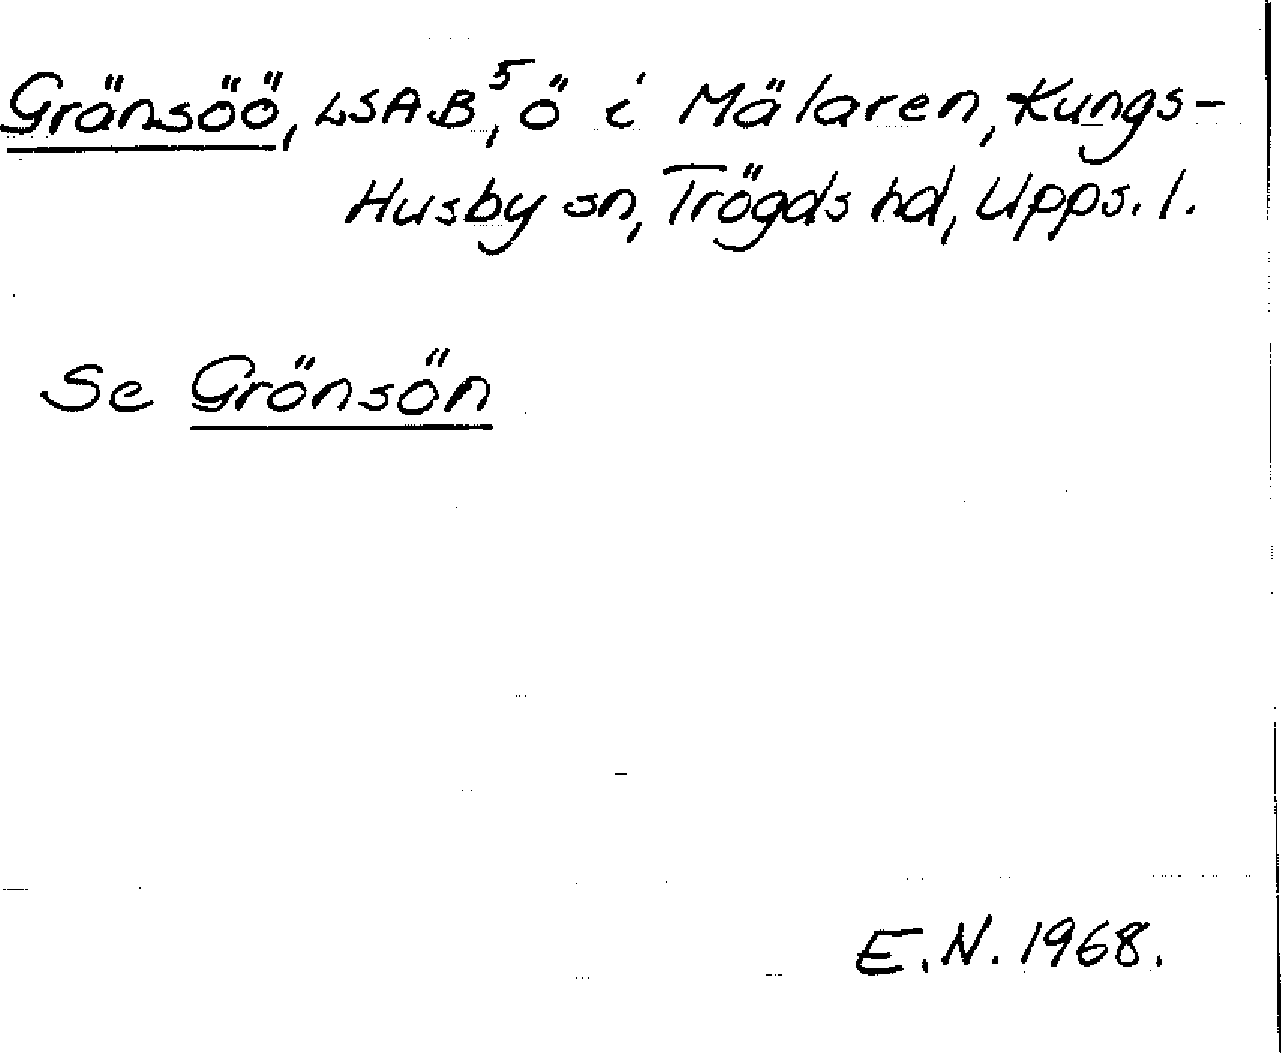 Gränsöö, LSAB⁵, ö i Mälaren, Kungs-
Husby sn, Trögds hd, Upps. l.
Se Grönsön
E.N. 1968.